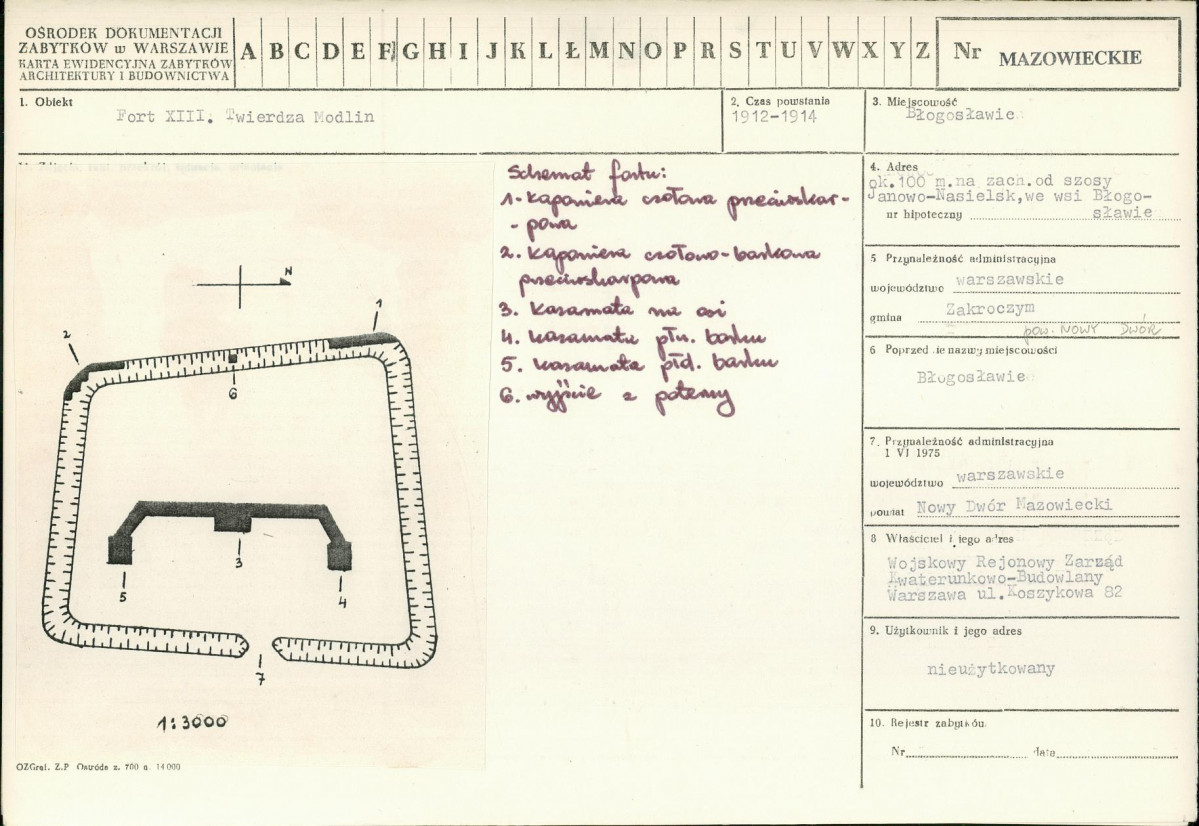 OŚRODEK DOKUMENTACJI
ZABYTKÓW w WARSZAWIE
KARTA EWIDENCYJNA ZABYTKÓW
ARCHITEKTURY I BUDOWNICTWA
A B C D E F G H I J K L Ł M N O P R S T U V W X Y Z
Nr MAZOWIECKIE
1. Obiekt
Fort XIII. Twierdza Modlin
2. Czas powstania
1912-1914
3. Miejscowość
Błogosławie
Schemat fortu:
1- Kaponiera czołowa przeciwskar-
- powa
2. Kaponiera czołowo-barkowa
przeciwskarpowa
3. Kazamata na osi
4. kazamata płn. barku
5. kazamata płd. barku
6. wyjście z poterny
N
2
1
6
3
5
4
7
1:3000
OZGraf. Z.P Ostróda z. 700 n. 14000
4. Adres
ok.100 m.na zach.od szosy
Janowo-Nasielsk,we wsi Błogo-
nr hipoteczny sławie
5 Przynależność administracyjna
województwo warszawskie
gmina Zakroczym
pow. NOWY DWÓR
6 Poprzednie nazwy miejscowości
Błogosławie
7. Przynależność administracyjna
1 VI 1975
województwo warszawskie
powiat Nowy Dwór Mazowiecki
8 Właściciel i jego adres
Wojskowy Rejonowy Zarząd
Kwaterunkowo-Budowlany
Warszawa ul.Koszykowa 82
9. Użytkownik i jego adres
nieużytkowany
10. Rejestr zabytków
Nr data